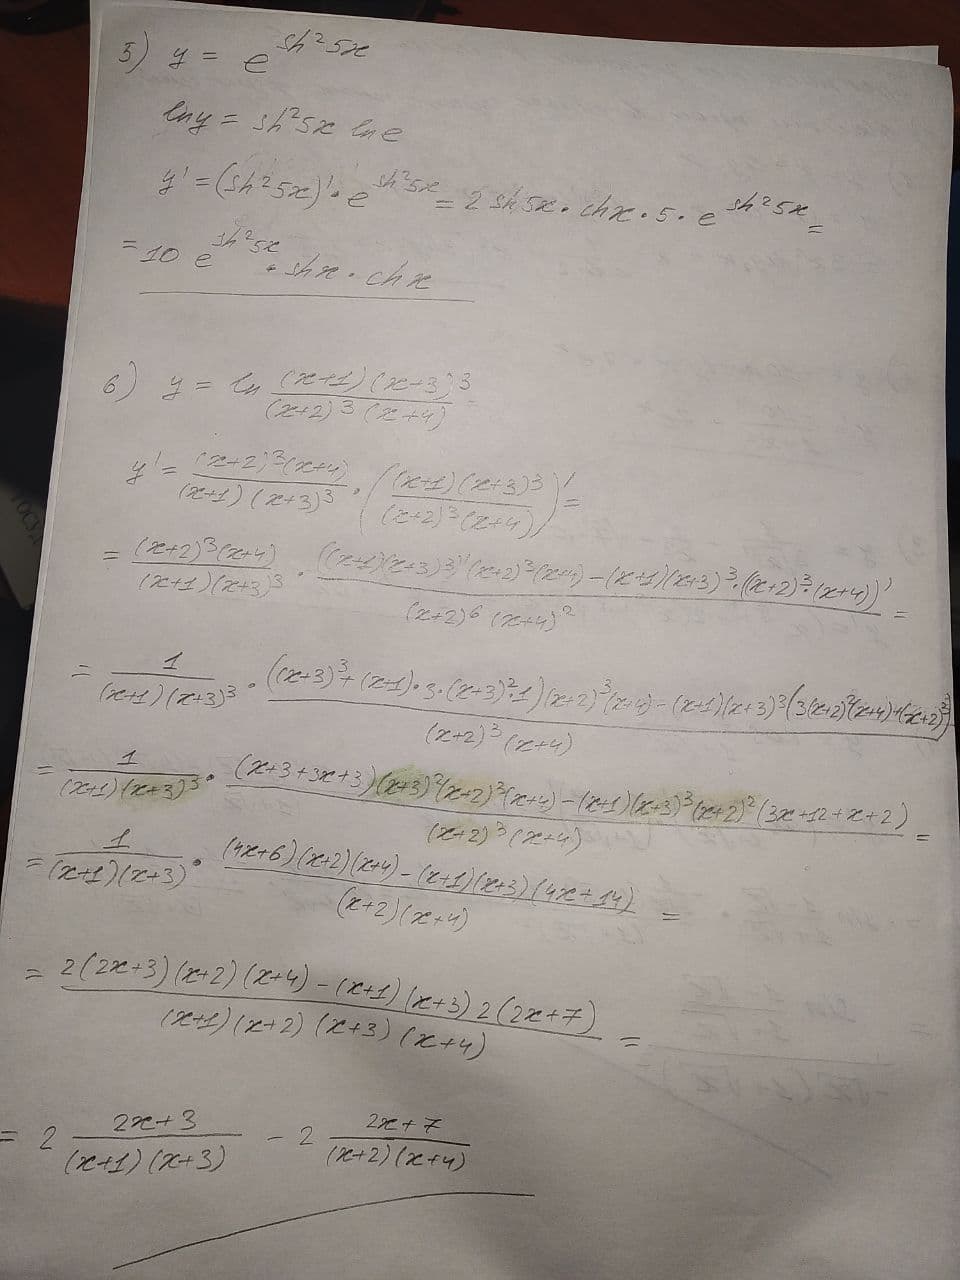 5) y = e^{sh²5x}
ln y = sh²5x ln e
y' = (sh²5x)' · e^{sh²5x} = 2 sh 5x · chx · 5 · e^{sh²5x} =
= 10 e^{sh²5x} · shx · chx
6) y = ln \frac{(x+1)(x+3)^3}{(x+2)^3(x+4)}
y' = \frac{(x+2)^3(x+4)}{(x+1)(x+3)^3} · (\frac{(x+1)(x+3)^3}{(x+2)^3(x+4)})' =
= \frac{(x+2)^3(x+4)}{(x+1)(x+3)^3} · \frac{((x+1)(x+3)^3)'(x+2)^3(x+4) - (x+1)(x+3)^3 · ((x+2)^3·(x+4))'}{(x+2)^6 (x+4)^2} =
= \frac{1}{(x+1)(x+3)^3} · \frac{((x+3)^3 + (x+1)·3·(x+3)^2·1)(x+2)^3(x+4) - (x+1)(x+3)^3(3(x+2)^2(x+4)+(x+2)^3)}{(x+2)^3(x+4)}
= \frac{1}{(x+1)(x+3)^3} · \frac{(x+3+3x+3)(x+3)^2(x+2)^3(x+4) - (x+1)(x+3)^3(x+2)^2(3x+12+x+2)}{(x+2)^3(x+4)} =
= \frac{1}{(x+1)(x+3)} · \frac{(4x+6)(x+2)(x+4) - (x+1)(x+3)(4x+14)}{(x+2)(x+4)} =
= \frac{2(2x+3)(x+2)(x+4) - (x+1)(x+3)2(2x+7)}{(x+1)(x+2)(x+3)(x+4)} =
= 2 \frac{2x+3}{(x+1)(x+3)} - 2 \frac{2x+7}{(x+2)(x+4)}